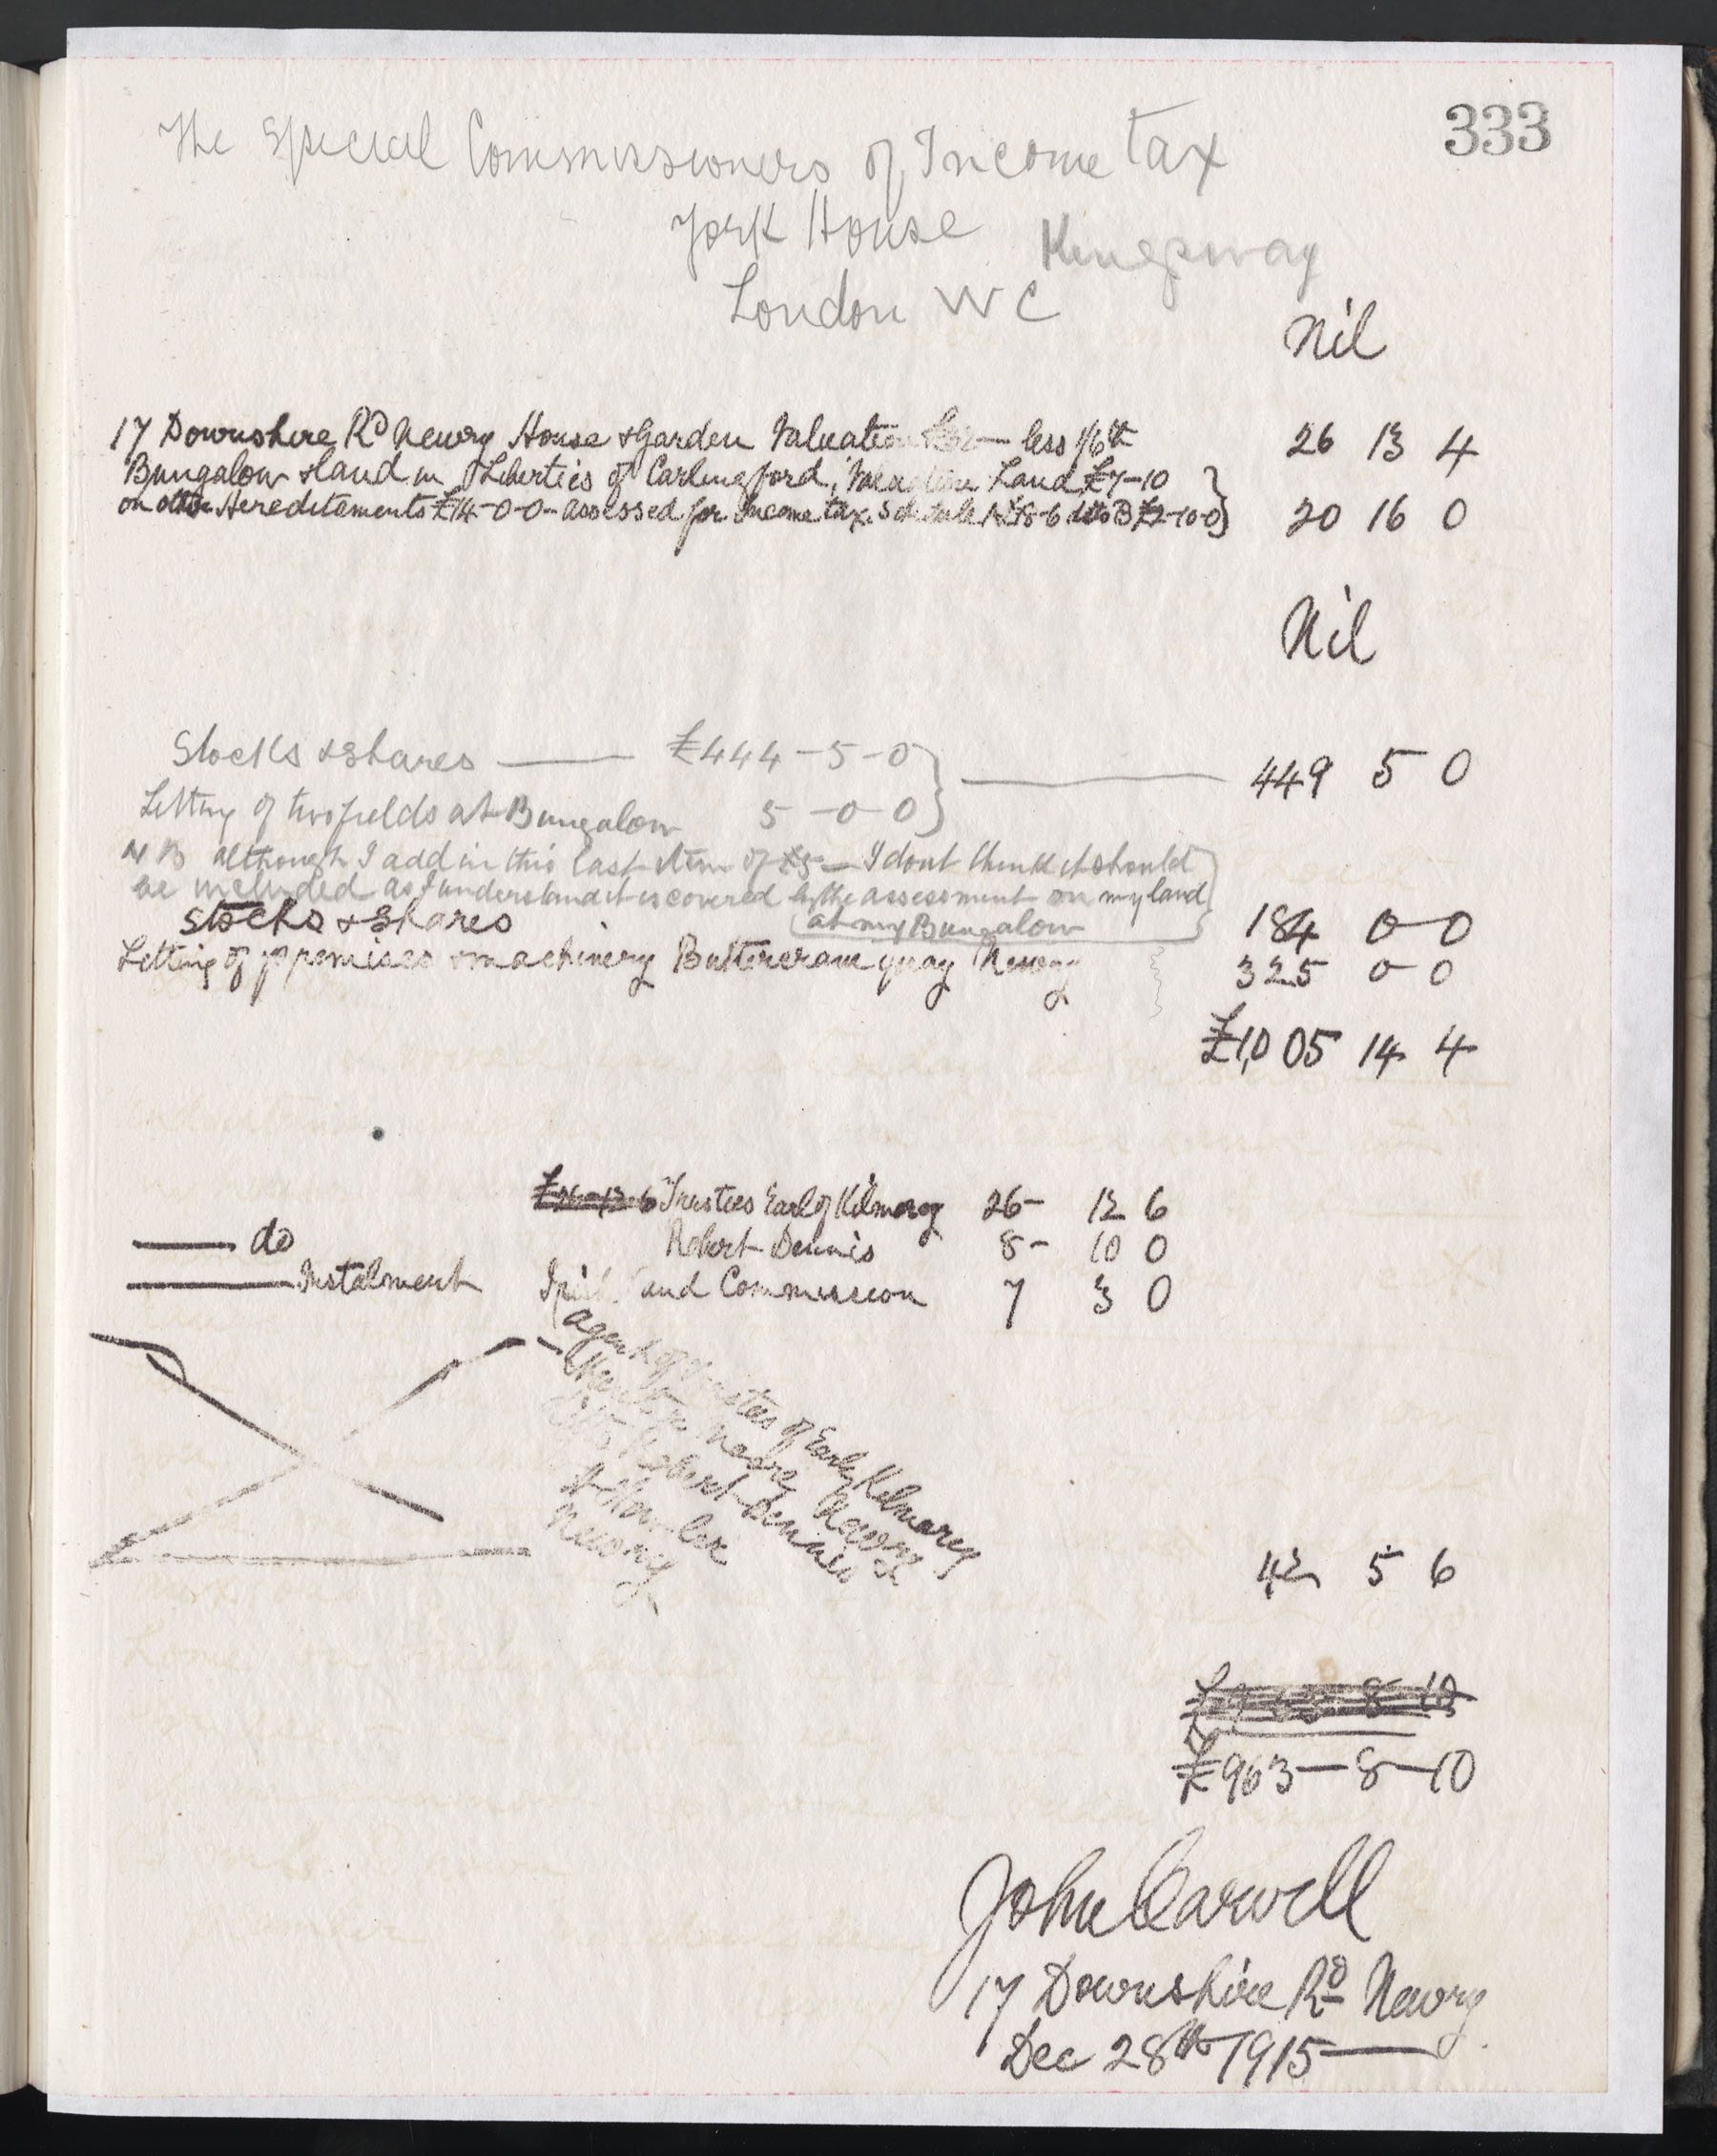 333
The Special Commissioners of Income tax
York House Kingsway
London WC
Nil
17 Downshire Rd Newry House & Garden Valuation £32 — less 1/6th 26 13 4
Bungalow & land in Liberties of Carlingford, Valuation Land £7-10
on other Hereditaments £14-0-0- assessed for income tax. Schedule A £18-6 ditto B £2-10-0 20 16 0
Nil
Stocks & Shares —— £444-5-0 —— 449 5 0
Letting of two fields at Bungalow 5-0-0
NB although I add in this last item of £5 — I dont think it should
be included as I understand it is covered by the assessment on my land
at my Bungalow
Stocks & Shares 184 0-0
Letting of premises & machinery Buttercrane quay Newry 325 0-0
£1,005 14 4
£26-12-6 Trustees Earl of Kilmorey 26- 12 6
—— do Robert Dennis 8- 10 0
—— Instalment Irish Land Commission 7 3 0
agent of Trustees of Earl of Kilmorey
Newry
Robert Dennis
Newry
42 5 6
£963 8 10
£963-8-10
John Carvell
17 Downshire Rd Newry
Dec 28th 1915 ——